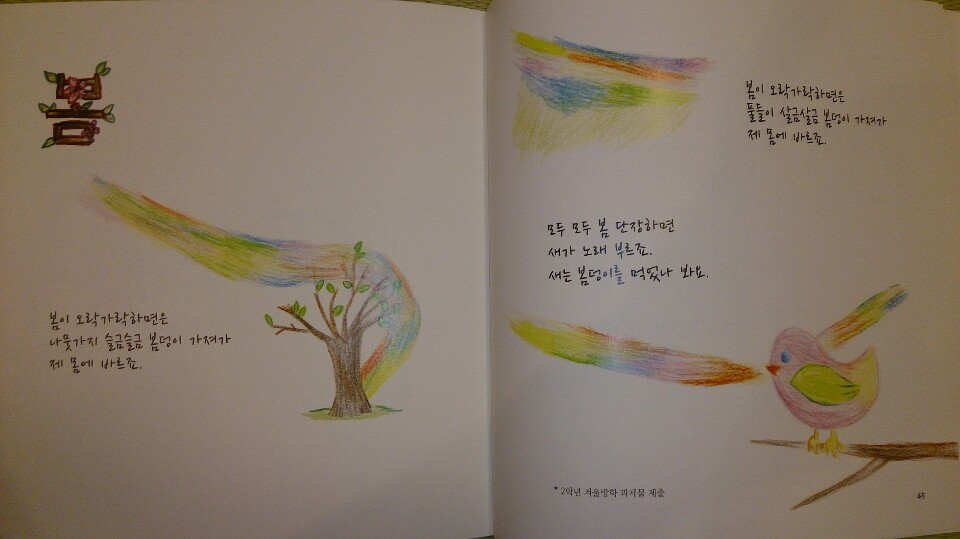 봄
봄이 오락가락하면은
나뭇가지 슬금슬금 봄덩이 가져가
제 몸에 바르죠.
봄이 오락가락하면은
풀들이 살금살금 봄덩이 가져가
제 몸에 바르죠.
모두 모두 봄 단장하면
새가 노래 부르죠.
새는 봄덩이를 먹었나 봐요.
* 2학년 겨울방학 과제물 제출
45